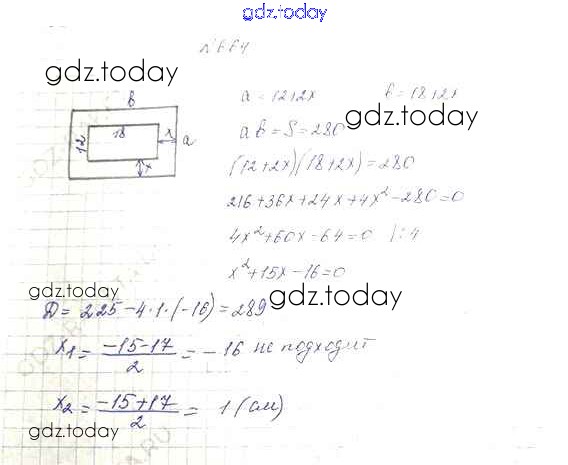 gdz.today
№664
gdz.today
b
18
12
x
a
x
a = 12+2x
b = 18+2x
ab = S = 280
gdz.today
(12+2x)(18+2x)=280
216+36x+24x+4x²-280=0
4x²+60x-64=0 |:4
x²+15x-16=0
gdz.today
gdz.today
D = 225-4·1·(-16)=289
x₁ = (-15-17)/2 = -16 не подходит
x₂ = (-15+17)/2 = 1 (см)
gdz.today